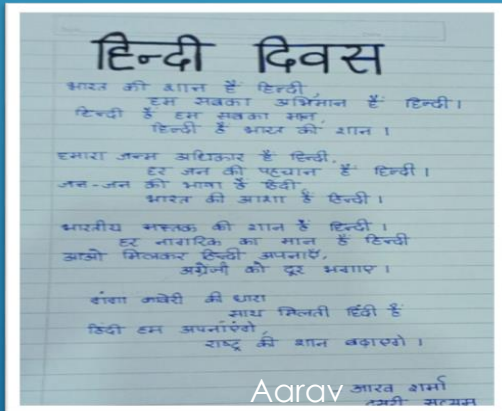 हिन्दी दिवस
भारत की शान है हिन्दी,
हम सबका अभिमान है हिन्दी।
हिन्दी है हम सबका मान,
हिन्दी है भारत की शान।
हमारा जन्म अधिकार है हिन्दी,
हर जन की पहचान है हिन्दी।
जन-जन की भाषा है हिंदी
भारत की आशा है हिन्दी।
भारतीय मस्तक की शान है हिन्दी।
हर नागरिक का मान है हिन्दी
आओ मिलकर हिन्दी अपनाएँ,
अंग्रेजी को दूर भगाए।
गंगा कावेरी की धारा
साथ मिलती हिंदी है
हिंदी हम अपनाएंगे,
राष्ट्र की शान बढ़ाएगे।
Aarav आरव शर्मा
दूसरी सत्यम